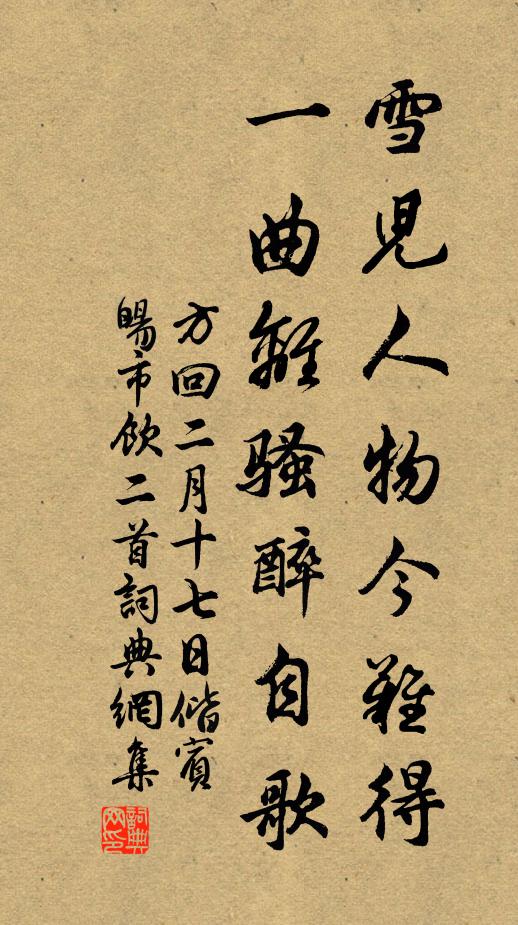 雪児人物今難得
一曲離騷醉自歌
方回二月十七日偕賓
暘市飲二首詞典網集
詞典
网印